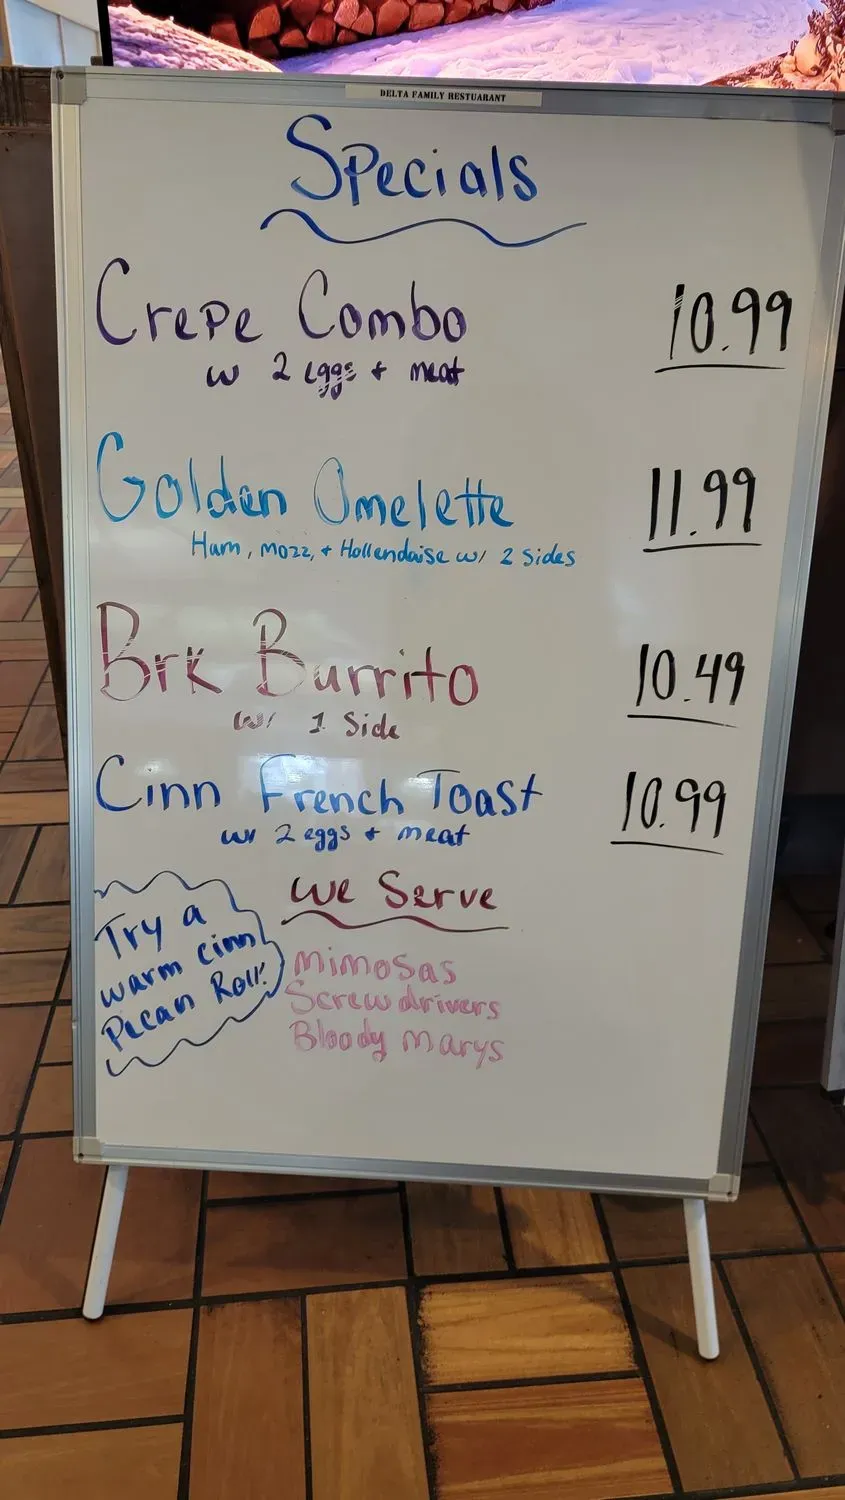 DELTA FAMILY RESTUARANT
Specials
Crepe Combo 10.99
w 2 eggs + meat
Golden Omelette 11.99
Ham, Mozz, + Hollendaise w/ 2 Sides
Brk Burrito 10.49
w/ 1 Side
Cinn French Toast 10.99
w/ 2 eggs + meat
Try a
warm cinn
Pecan Roll!
We Serve
Mimosas
Screwdrivers
Bloody Marys